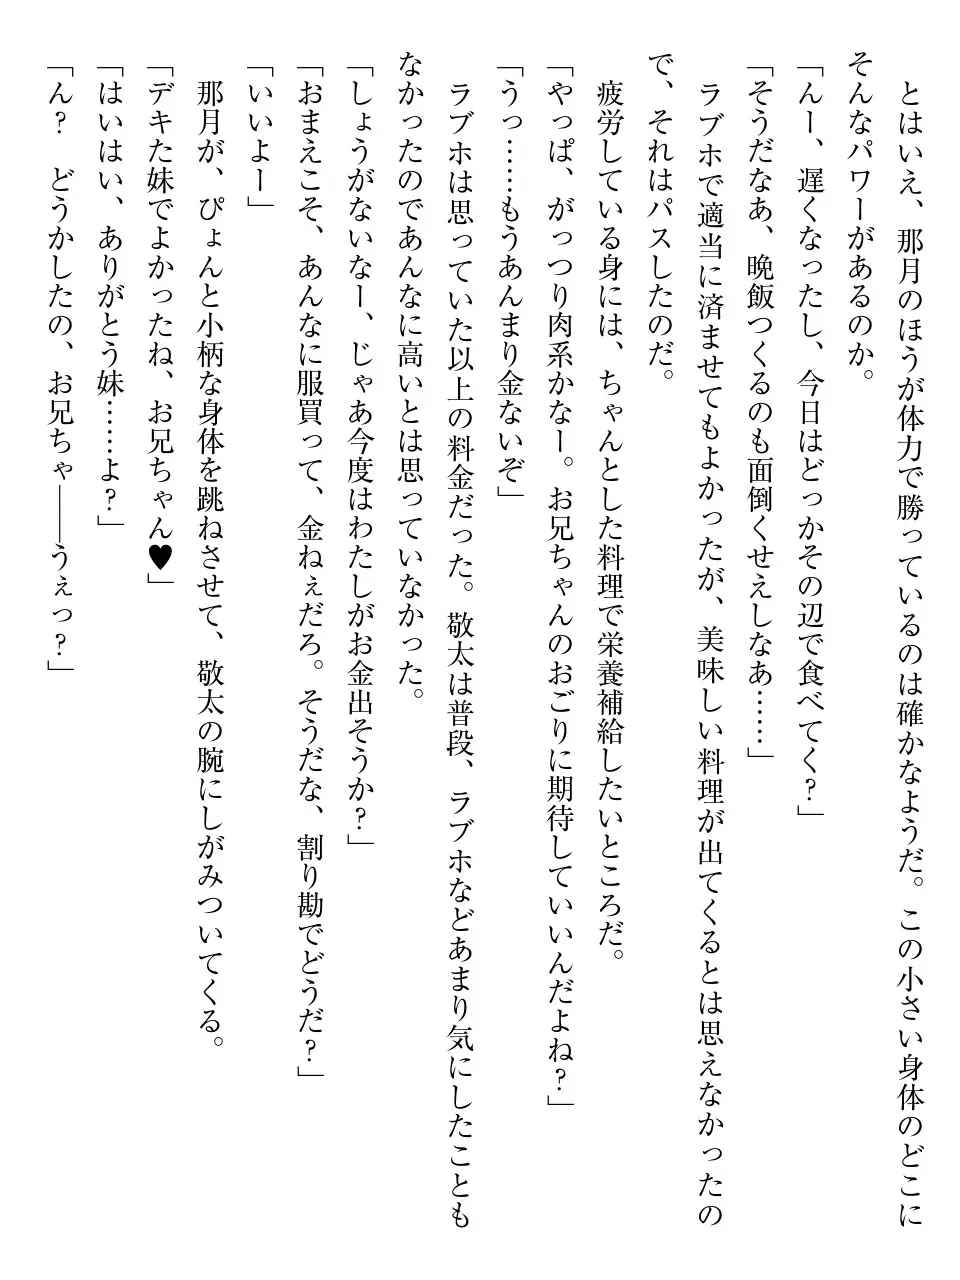 とはいえ、那月のほうが体力で勝っているのは確かなようだ。この小さい身体のどこに
そんなパワーがあるのか。
「んー、遅くなったし、今日はどっかその辺で食べてく？」
「そうだなあ、晩飯つくるのも面倒くせえしなあ……」
　ラブホで適当に済ませてもよかったが、美味しい料理が出てくるとは思えなかったの
で、それはパスしたのだ。
　疲労している身には、ちゃんとした料理で栄養補給したいところだ。
「やっぱ、がっつり肉系かなー。お兄ちゃんのおごりに期待していいんだよね？」
「うっ……もうあんまり金ないぞ」
　ラブホは思っていた以上の料金だった。敬太は普段、ラブホなどあまり気にしたことも
なかったのであんなに高いとは思っていなかった。
「しょうがないなー、じゃあ今度はわたしがお金出そうか？」
「おまえこそ、あんなに服買って、金ねぇだろ。そうだな、割り勘でどうだ？」
「いいよー」
　那月が、ぴょんと小柄な身体を跳ねさせて、敬太の腕にしがみついてくる。
「デキた妹でよかったね、お兄ちゃん♥」
「はいはい、ありがとう妹……よ？」
「ん？　どうかしたの、お兄ちゃ――うぇっ？」